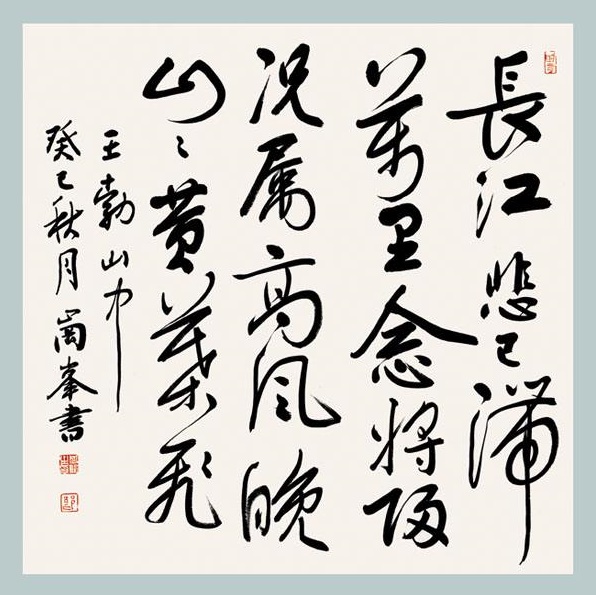 長江悲已滯
萬里念將歸
況属高風晚
山〻黄葉飛
王勃山中
癸巳秋月崗峯書